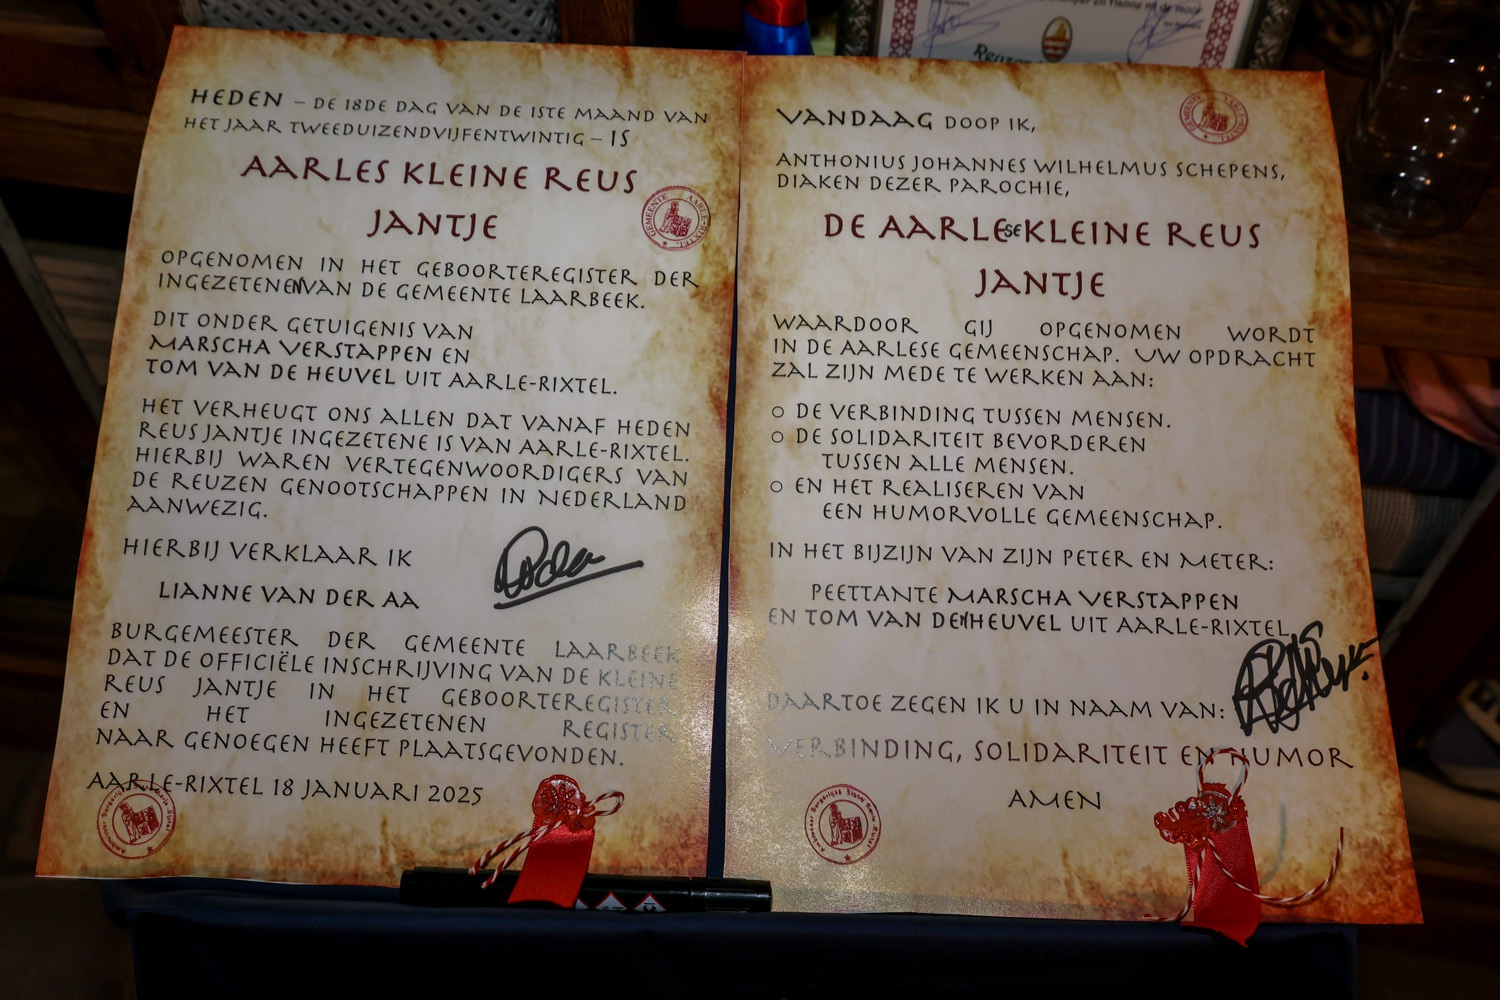 HEDEN – DE 18DE DAG VAN DE 1STE MAAND VAN
HET JAAR TWEEDUIZENDVIJFENTWINTIG – IS
AARLES KLEINE REUS
JANTJE
GEMEENTE AARLE-RIXTEL
OPGENOMEN IN HET GEBOORTEREGISTER DER
INGEZETENEN VAN DE GEMEENTE LAARBEEK.
DIT ONDER GETUIGENIS VAN
MARSCHA VERSTAPPEN EN
TOM VAN DE HEUVEL UIT AARLE-RIXTEL.
HET VERHEUGT ONS ALLEN DAT VANAF HEDEN
REUS JANTJE INGEZETENE IS VAN AARLE-RIXTEL.
HIERBIJ WAREN VERTEGENWOORDIGERS VAN
DE REUZEN GENOOTSCHAPPEN IN NEDERLAND
AANWEZIG.
HIERBIJ VERKLAAR IK
LIANNE VAN DER AA
BURGEMEESTER DER GEMEENTE LAARBEEK
DAT DE OFFICIËLE INSCHRIJVING VAN DE KLEINE
REUS JANTJE IN HET GEBOORTEREGISTER
EN HET INGEZETENEN REGISTER
NAAR GENOEGEN HEEFT PLAATSGEVONDEN.
AARLE-RIXTEL 18 JANUARI 2025
VANDAAG DOOP IK,
GEMEENTE AARLE-RIXTEL
ANTHONIUS JOHANNES WILHELMUS SCHEPENS,
DIAKEN DEZER PAROCHIE,
DE AARLESE KLEINE REUS
JANTJE
WAARDOOR GIJ OPGENOMEN WORDT
IN DE AARLESE GEMEENSCHAP. UW OPDRACHT
ZAL ZIJN MEDE TE WERKEN AAN:
○ DE VERBINDING TUSSEN MENSEN.
○ DE SOLIDARITEIT BEVORDEREN
TUSSEN ALLE MENSEN.
○ EN HET REALISEREN VAN
EEN HUMORVOLLE GEMEENSCHAP.
IN HET BIJZIJN VAN ZIJN PETER EN METER:
PEETTANTE MARSCHA VERSTAPPEN
EN TOM VAN DEN HEUVEL UIT AARLE-RIXTEL
DAARTOE ZEGEN IK U IN NAAM VAN:
VERBINDING, SOLIDARITEIT EN HUMOR
AMEN